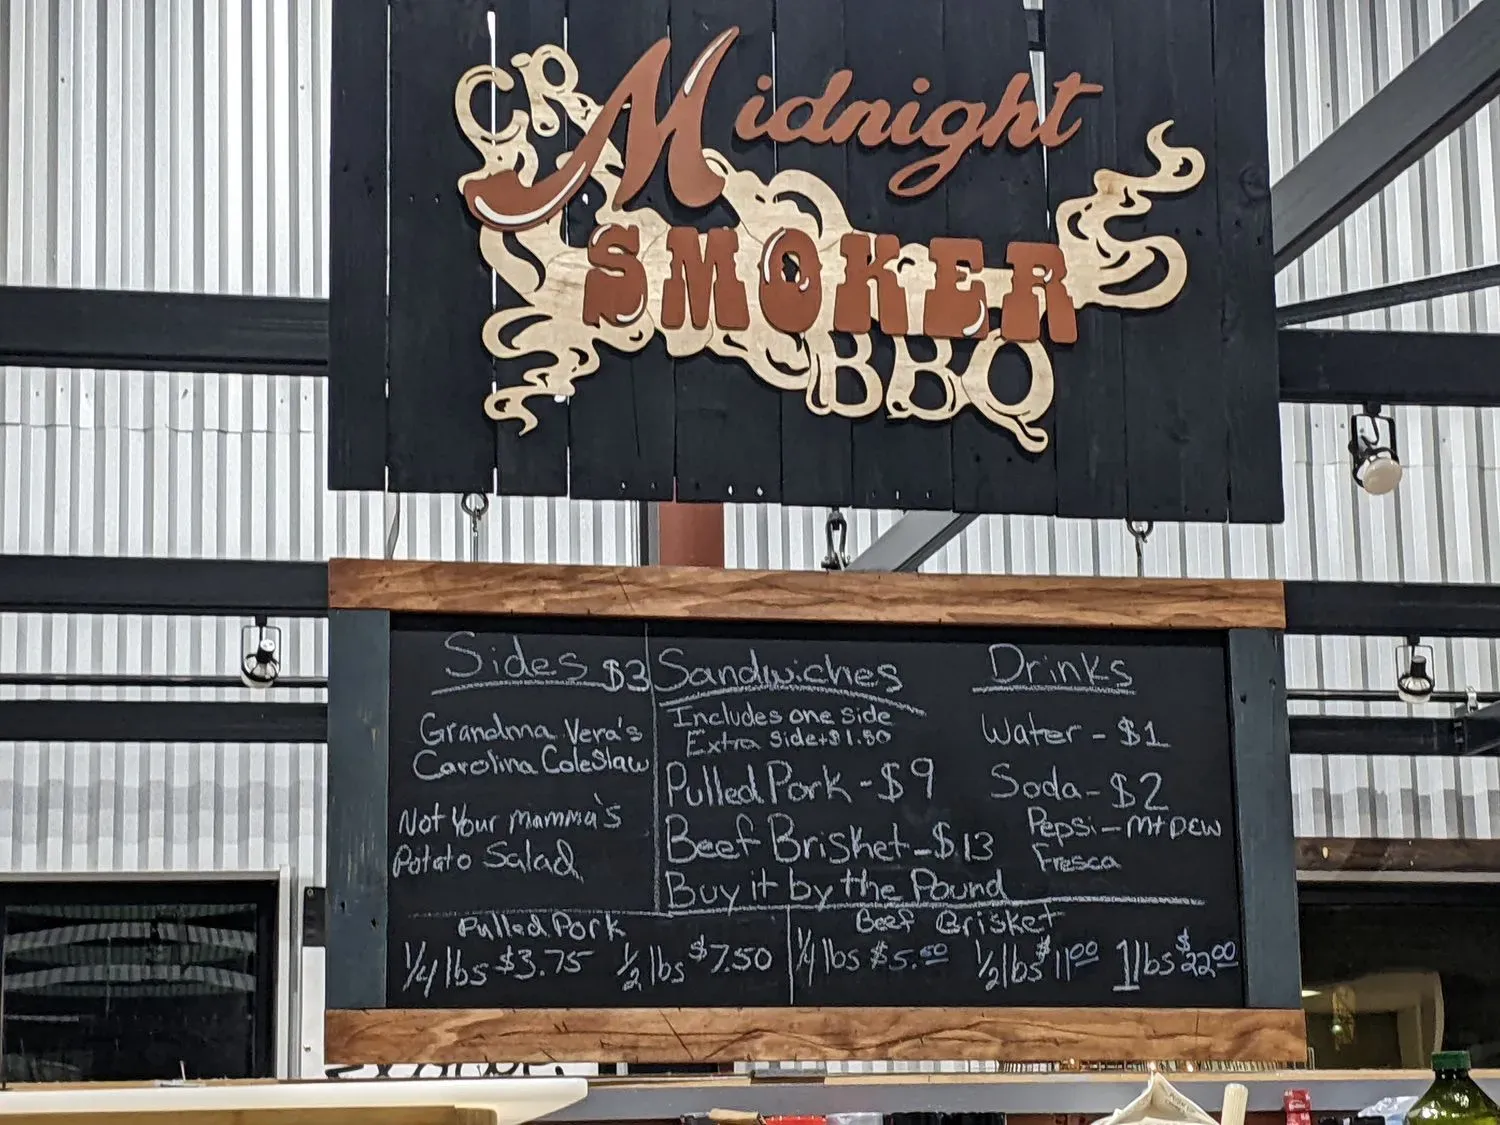 CR Midnight
SMOKER
BBQ
Sides $3
Grandma Vera's
Carolina Coleslaw
Not Your mamma's
Potato Salad
Sandwiches
Includes one side
Extra side +$1.50
Pulled Pork - $9
Beef Brisket - $13
Buy it by the Pound
Drinks
Water - $1
Soda - $2
Pepsi - Mt Dew
Fresca
Pulled Pork
1/4 lbs $3.75 1/2 lbs $7.50
Beef Brisket
1/4 lbs $5.50 1/2 lbs $11.00 1 lbs $22.00